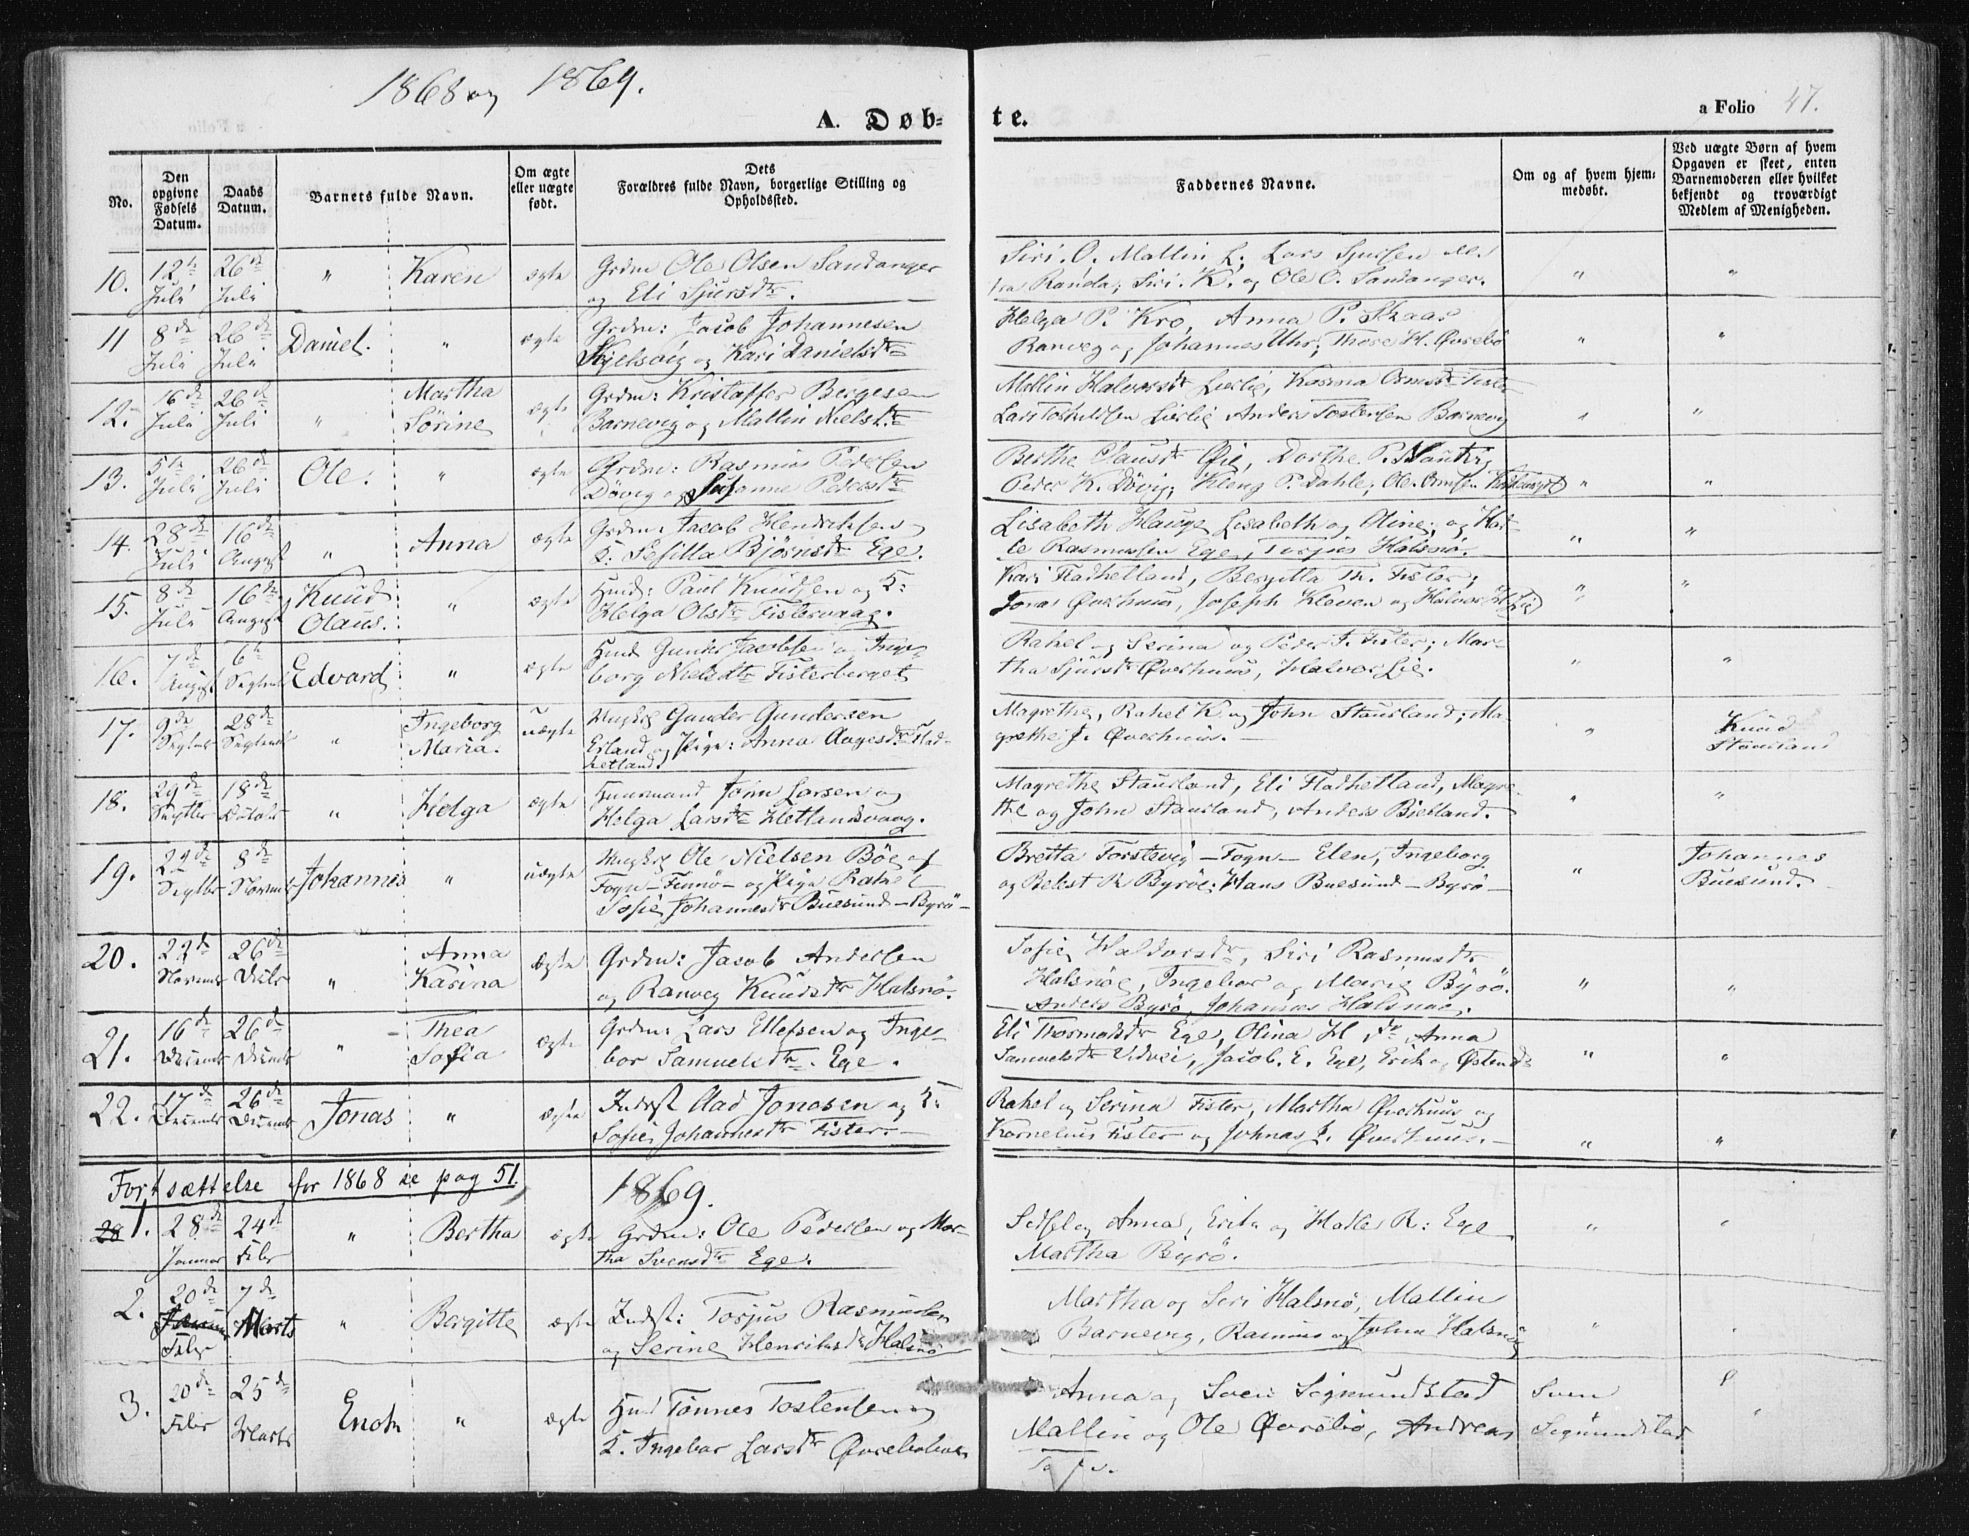 1868 og 1869.
A. Døb-
te.
a Folio 47.
No.
Den opgivne Fødsels Datum.
Daabs Datum.
Barnets fulde Navn.
Om ægte eller uægte født.
Dets Forældres fulde Navn, borgerlige Stilling og Opholdssted.
Faddernes Navne.
Om og af hvem hjemmedøbt.
Ved uægte Børn af hvem Opgaven er skeet, enten Barnemoderen eller hvilket bekjendt og troværdigt Medlem af Menigheden.
10. 12te Juli 26de Juli " Karen ægte Grdm Ole Olsen Sandanger
og Eli Sjursdtr.
Siri. O. Mallin L. Lars
fra Randa; Siri. K. og Ole O. Sandanger. " "
11 8de Juli 26de Juli Daniel. " ægte Grdm: Jacob Johannesen
og Kari Danielsdtr
Helga P. Kro, Anna P. Skaar
Ranveg og Johannes Uhr; Thore H. Øvrebø " "
12. 16de Juli 26de Juli " Martha Sørine ægte Grdm: Kristaffer Bergesen
Barnevig og Mallin Nielsdtr
Mallin Halvorsdtr Lierlie, Kosina Ormsdtr
Lars Lierlie Anders Tostensen Barnevig " "
13. 5te Juli 26de Juli Ole. " ægte Grdm: Rasmus Pedersen
Døvig og Susanne Pedersdtr
Berthe Clausdtr Øie, Dorthe P.
Peder K. Døvig; Kleng P. Dahle; Ole Ormsen " "
14. 28de Juli 16de August " Anna ægte Grdm: Jacob Hendriksen
K: Sesilla Bjørnsdtr Ege.
Lisabeth Hauge Lisabeth og Oline; og Hal-
le Rasmussen Ege, Torjus Halsnø. " "
15. 8de Juli 16de August Knud Olaus. " ægte Huusm: Paul Knudsen og K:
Helga Olsdtr Fistervaag.
Kari Fladhetland, Bergitta Th. Fister;
Jonas Øverhuus, Joseph Kleven og Halvor H. Lie " "
16. 7de August 6te Septemb Edvard " ægte Gunder Jacobsen og Inge-
borg Nielsdtr Fisterberget
Rahel og Serina og Peder J. Fister; Mar-
tha Sjursdtr Øverhuus, Halvor Lie. " "
17. 9de Septbr 28de Septemb " Ingeborg Maria. uægte Ungkrl Gunder Gundersen
Eiland og Pige: Anna Aagesdtr Flad-
hetland.
Magrethe, Rahel K og John Stausland; Ma
grethe J. Øverhuus. " Knud Stausland
18. 29de Septbr 18de Octobr " Helga ægte Huusmand John Larsen og
Helga Larsdtr Hetlandsvaag.
Magrethe Stausland, Eli Fladhetland, Magre-
the og John Stausland, Anders Bjelland. " "
19. 22de Septbr 8de Novemb Johannes " uægte Ungkrl Ole Nielsen Bøe af
Fogn - Finnø - og Pige Rahel
Sofie Johannesdtr Buesund - Byrø -
Breita Forstevig - Fogn - Elen, Ingeborg
og R Byrøe; Hans Buesund - Byrø - " Johannes Buesund.
20. 22de Novemb 26de Decbr " Anna Karina ægte Grdm: Jacob Andersen
og Ranveg Knudsdtr Halsnø.
Sofie Haldorsdtr, Siri Rasmusdtr
Halsnøe, Ingebor og Marie Byrø.
Anders Byrø, Johannes Halsnøe. " "
21. 16de Decemb 26de Decemb " Thea Sofia ægte Grdm: Lars Ellefsen og Inge-
bor Samuelsdtr. Ege.
Eli Thormodsdtr Ege, Olina H do Anna
Samuelsdtr, Jacob. E. Ege, Erik " "
22. 17de Decemb 26de Decemb Jonas " ægte Inderst Aad Jonasen og K:
Sofie Johannesdtr Fister.
Rahel og Serina Fister, Martha Øverhuus og
Kornelius Fister og Johnas J. Øverhuus. " "
Fortsættelse for 1868 se pag 51
1869.
1. 28de Januar 24d Febr " Bertha ægte Grdm: Ole Pedersen og Mar-
tha Svensdtr Ege.
og Anna, og Halle R: Ege
Martha Byrø. " "
2. 20de Febr 7de Marts " Bergitte ægte Inderst: Torjus Rasmusen
og Serine Henriksdtr Halsnø
Martha og Seri Halsnø, Mallin
Barnevig, Rasmus og John Halsnøe " "
3. 20de Febr 25de Marts Enok " ægte Huusm Tønnes Tostensen og
K. Ingebor Larsdtr Øvrebø
Anna og Sven Sigmundstad
Mallin og Ole Øvrebø, Andreas
Sven Sigmundstad "